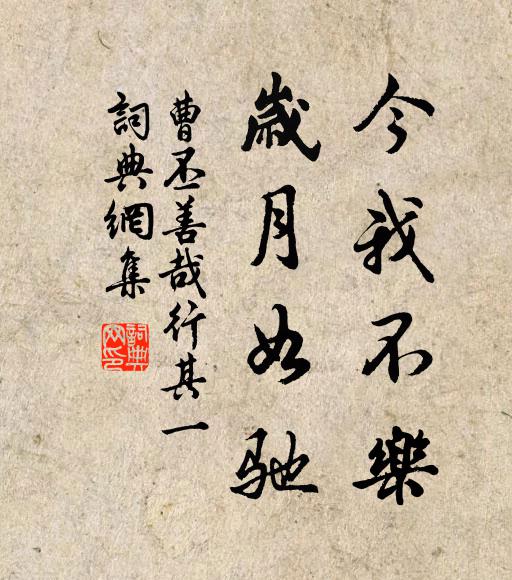 今我不樂
歲月如馳
曹丕善哉行其一
詞典網集
詞典網印